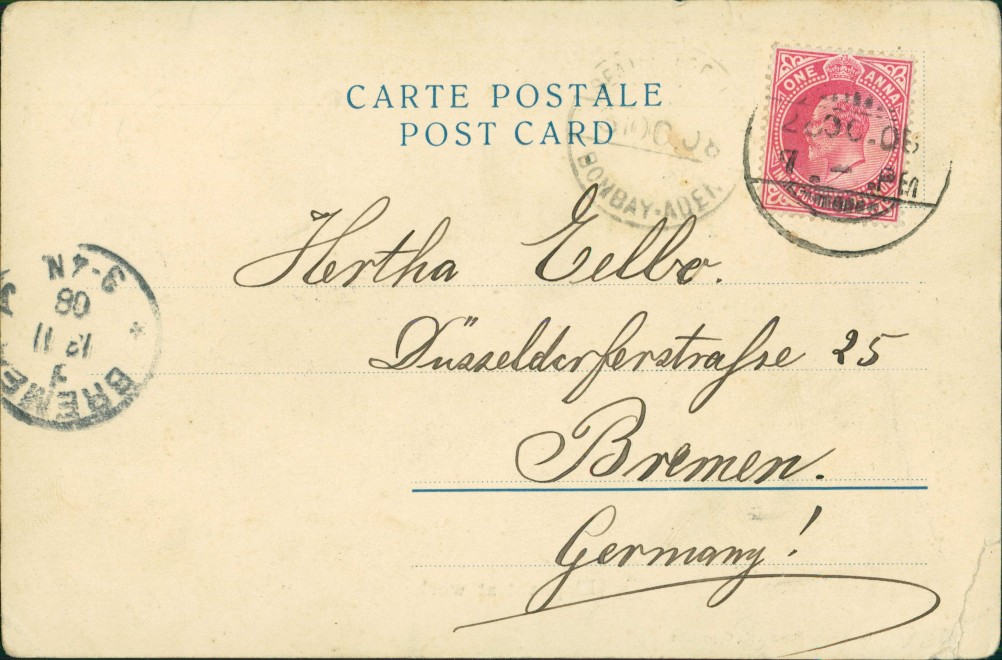 CARTE POSTALE
POST CARD
ONE ANNA
BOMBAY-ADEN
Hertha Eelbo.
Düsseldorferstraße 25
Bremen.
Germany!
3-4N
08
BREME